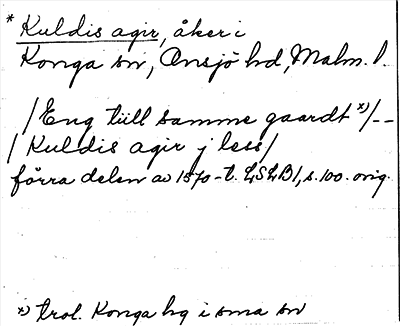 * Kuldis agir, åker i
Konga sn, Onsjö hd, Malm. l.
/Eng tiill samme gaardt x)/--
/Kuldis agir j less/
förra delen av 1570-t. LSLB1, s.100. orig.
x) trol. Konga by i sma sn